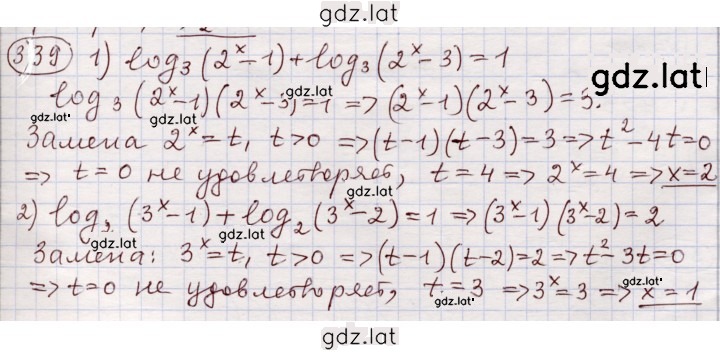 gdz.lat
339 1) log₃(2ˣ-1)+log₃(2ˣ-3)=1
gdz.lat
log₃(2ˣ-1)(2ˣ-3)=1 => (2ˣ-1)(2ˣ-3)=3.
gdz.lat gdz.lat
Замена 2ˣ=t, t>0 =>(t-1)(t-3)=3=>t²-4t=0
gdz.lat gdz.lat gdz.lat
=> t=0 не удовлетворяет, t=4 => 2ˣ=4 =>x=2
2) log₂(3ˣ-1)+log₂(3ˣ-2)=1 =>(3ˣ-1)(3ˣ-2)=2
gdz.lat gdz.lat
Замена: 3ˣ=t, t>0 =>(t-1)(t-2)=2=>t²-3t=0
=>t=0 не удовлетворяет, t=3 =>3ˣ=3=>x=1
gdz.lat gdz.lat
gdz.lat